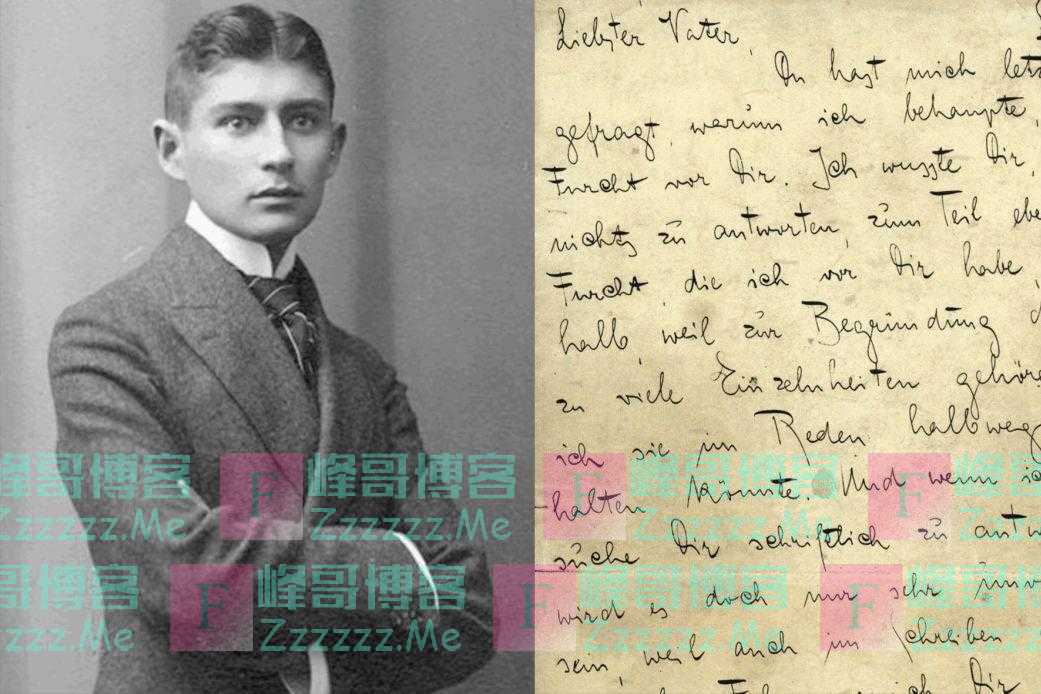 Liebster Vater,
Du hast mich letz
gefragt, warum ich behaupte,
Furcht vor Dir. Ich wusste Dir,
nichts zu antworten, zum Teil ebe
Furcht, die ich vor Dir habe,
halb, weil zur Begründung d
zu viele Einzelnheiten gehöre
ich sie im Reden halbweg
halten könnte. Und wenn ic
suche Dir schriftlich zu antw
wird es doch nur sehr
sein, weil auch im Schreiben
Dir
峰哥博客 F 峰哥博客 F 峰哥博客 F
Zzzzzz.Me Zzzzzz.Me Zzzzzz.Me
峰哥博客 F 峰哥博客 F 峰哥博客 F 峰哥博客
zzzz.Me Zzzzzz.Me Zzzzzz.Me Zzzzzz.Me